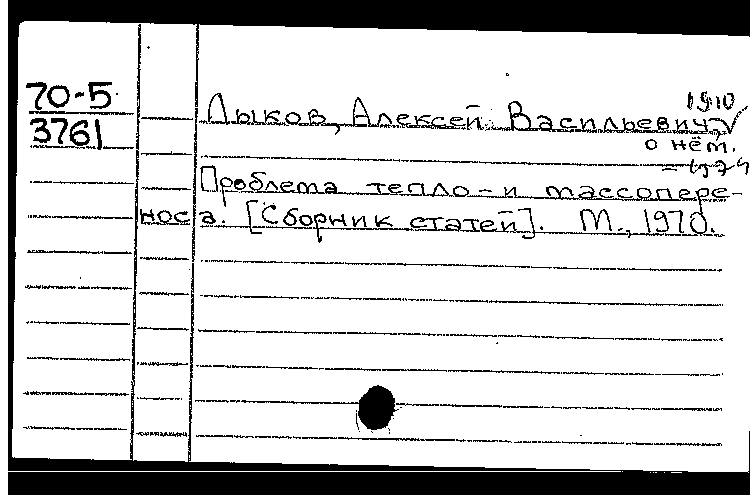 70-5
3761
1910
Лыков, Алексей Васильевич,
о нём.
- 1974
Проблема тепло-и массопере-
носа. [Сборник статей]. М., 1970.